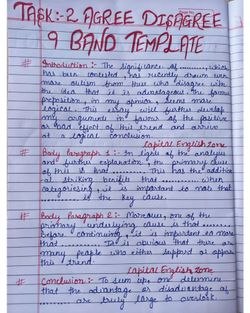 TASK:-2 AGREE DISAGREE
9 BAND TEMPLATE
# Introduction :- The significance of ..........., which
has been contested, has recently drawn even
more from those who disagree with
the idea that is advantageous. The former
preposition, in my opinion, seems more
logical. This essay will further develop
my arguments in favour of the positive
or bad effect of this trend and arrive
at a logical conclusion.
Capital English Zone
# Body Paragraph 1 :- In light of the analysis
and further explanation, the primary cause
of this is that ........... This has the addition
al striking benefit that ........... when
categorising, it is important to note that
........... is the key cause.
# Body Paragraph 2 :- Moreover, one of the
primary underlying cause is that ...........
Before continuing, it is important to note
that ........... It is obvious that there are
many people who either support or oppose
this trend.
Capital English Zone
# Conclusion :- To sum up, one determine
that the advantage or disadvantage of
........... are truly large to overlook.